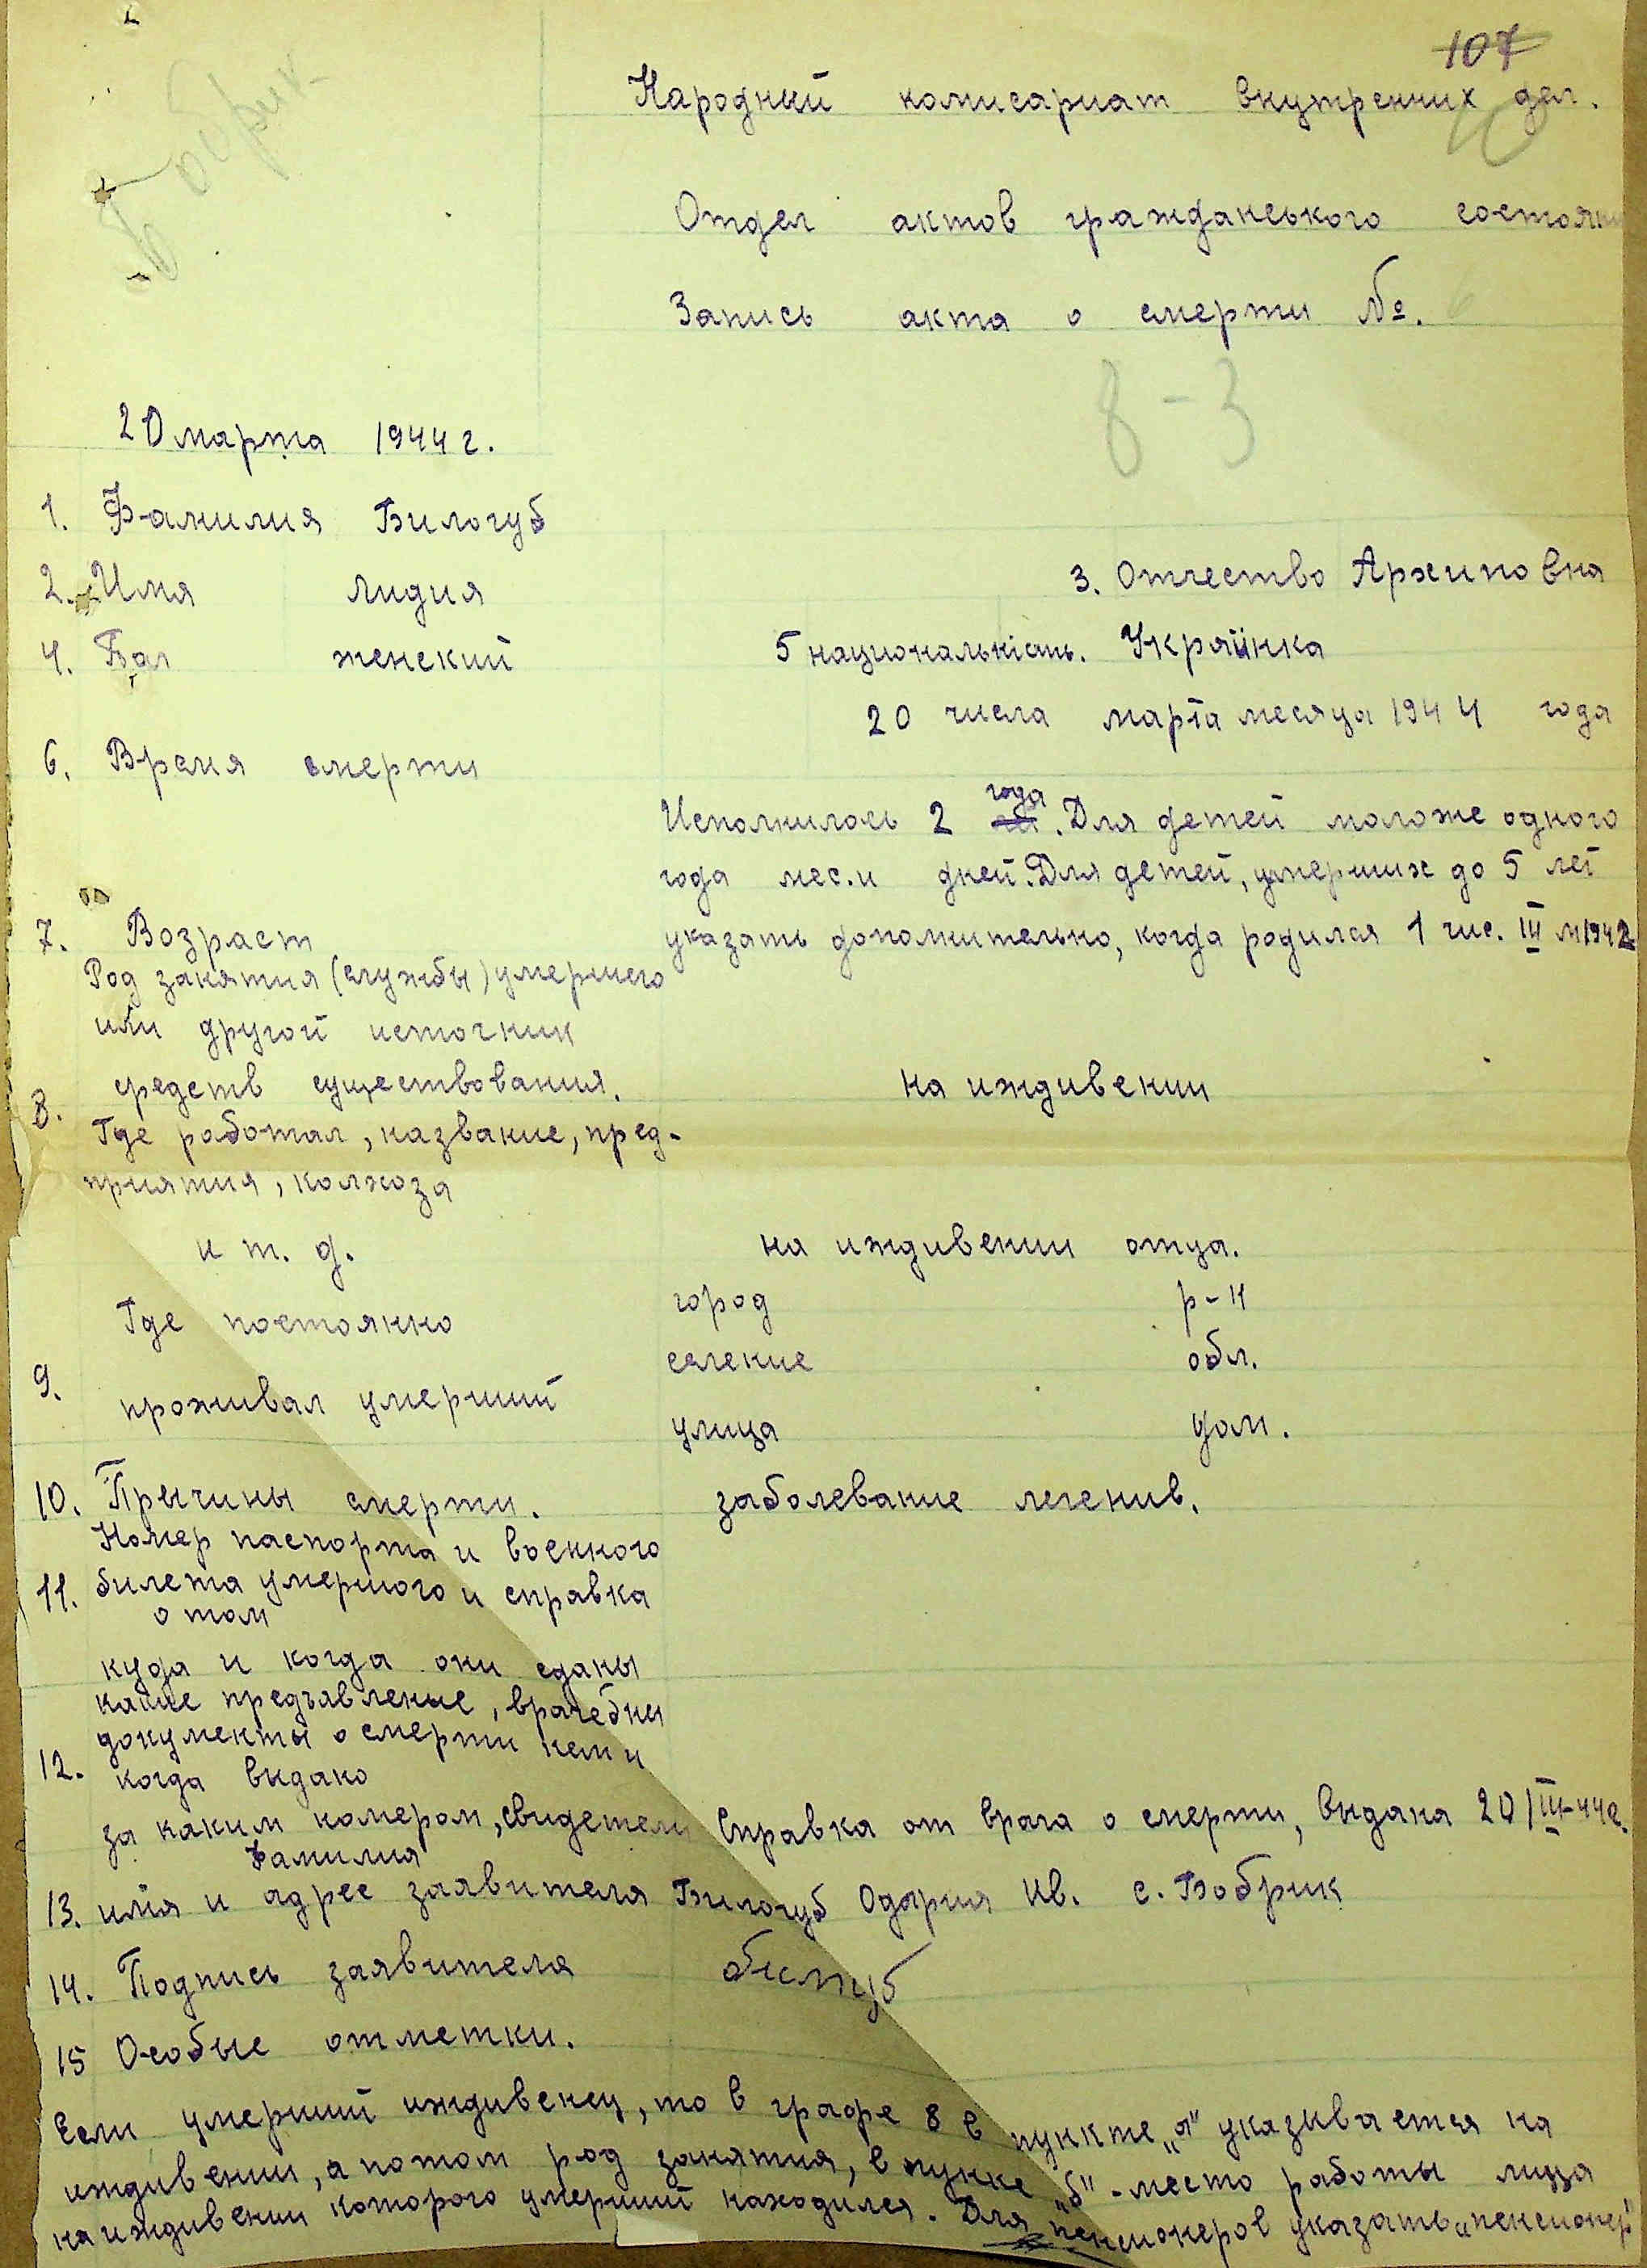 107
10
Бобрик
Народный комисариат внутренних дел.
Отдел актов гражданського состояни
Запись акта о смерти №. 6
8-3
20 марта 1944 г.
1. Фамилия Билогуб
2. Имя Лидия 3. Отчество Архиповна
4. женский 5 национальність. Украінка
20 числа марта месяца 1944 года
6. Время смерти
Исполнилось 2 года. Для детей моложе одного
года мес. и дней. Для детей, умерших до 5 лет
7. Возраст указать дополнительно, когда родился 1 чис. III м 1942
Род занятия (службы) умершего
или другой источник
8. средств существования. на иждивении
Где работал, название, пред-
приятия, колхоза
и т. д. на иждивении отца.
город р-н
Где постоянно
селение обл.
9. проживал умерший
улица дом.
10. Причины смерти. заболевание легенив.
Номер паспорта и военного
11. билета умершого и справка
о том
куда и когда они сданы
какие предъавление, врачебни
документы о смерти кем и
12. когда видано
за каким номером, свидетели Справка от врача о смерти, видана 20/III-44г.
Фамилия
13. имя и адрес заявителя Билогуб Одария Ив. с. Бобрик
14. Подпись заявителя
15 Особые отметки.
Если умерший иждивенец, то в графе 8 в пункте „а" указивается на
иждивении, а потом род занятия, в пункке „б" - место работы лица
на иждивении которого умерший находился. Для пенсионеров указать „пенсионер"